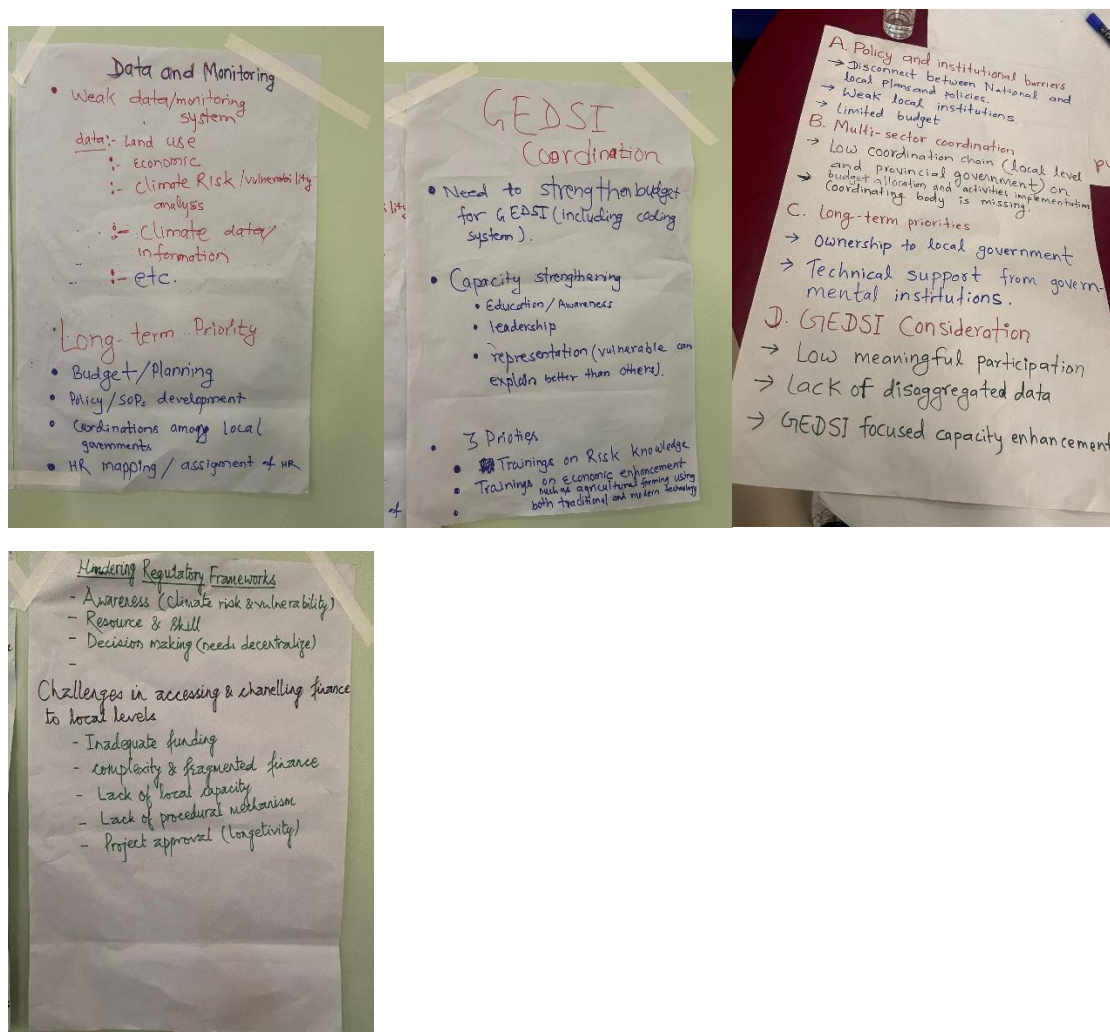 Data and Monitoring
• Weak data/monitoring
system
data:- Land use
:- Economic
:- Climate Risk/vulnerability
analysis
:- Climate data/
information
:- etc.
Long-term Priority
• Budget/Planning
• Policy/SOPs development
• Coordinations among local
governments
• HR mapping/assignment of HR
GEDSI
Coordination
• Need to strengthen budget
for GEDSI (including coding
system).
• Capacity strengthering
• Education/Awareness
• leadership
• representation (vulnerable can
explain better than others).
3 Prioties
• Trainings on Risk knowledge
• Trainings on economic enhancement
such as agricultural farming using
both traditional and modern technology
•
of
A. Policy and institutional barriers
→ Disconnect between National and
local plans and policies.
→ Weak local institutions.
→ Limited budget
B. Multi-sector coordination
→ Low coordination chain (local level
and provincial government) on
budget allocation and activities implementation
→ Coordinating body is missing.
C. Long-term priorities
→ Ownership to local government
→ Technical support from govern-
mental institutions.
D. GEDSI Consideration
→ Low meaningful participation
→ Lack of disaggregated data
→ GEDSI focused capacity enhancement
Hindering Regulatory Frameworks
- Awareness (climate risk & vulnerability)
- Resource & Skill
- Decision making (needs decentralize)
-
Challenges in accessing & chanelling finance
to local levels
- Inadequate funding
- complexity & fragmented finance
- Lack of local capacity
- Lack of procedural mechanism
- Project approval (longetivity)